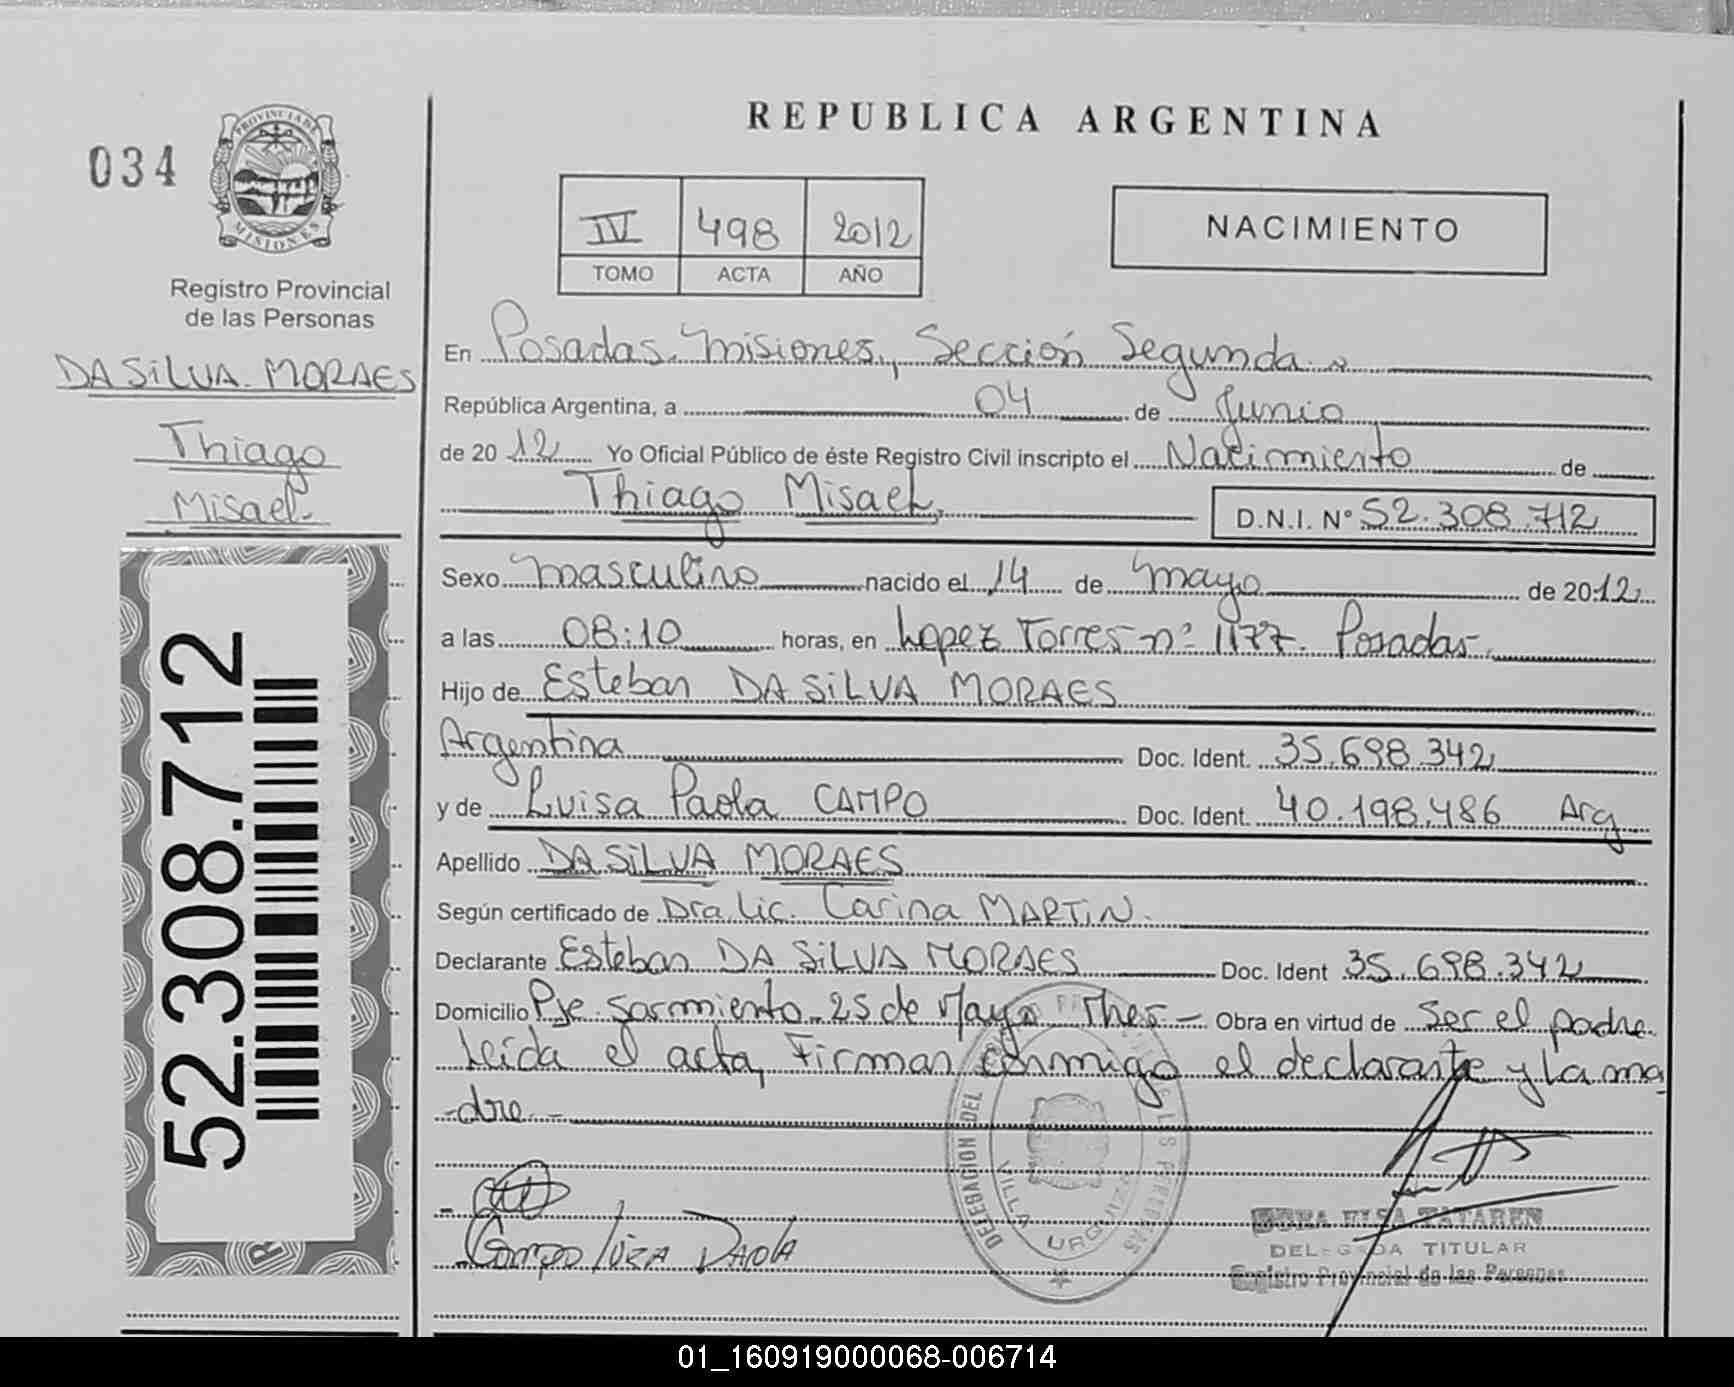 REPUBLICA ARGENTINA
034
PROVINCIA DE
MISIONES
Registro Provincial
de las Personas
DA SILVA MORAES
Thiago
Misael.
52.308.712
IV 498 2012
TOMO ACTA AÑO
NACIMIENTO
En Posadas. Misiones, Sección Segunda
República Argentina, a 04 de Junio
de 2012 Yo Oficial Público de éste Registro Civil inscripto el Nacimiento de
Thiago Misael,
D.N.I. N° 52.308.712
Sexo masculino nacido el 14 de mayo de 2012
a las 08:10 horas, en Lopez Torres n° 1177. Posadas.
Hijo de Esteban DA SILVA MORAES
Argentina Doc. Ident. 35.698.342
y de Luisa Paola CAMPO Doc. Ident. 40.198.486 Arg
Apellido DA SILVA MORAES
Según certificado de Dra. Lic. Carina MARTIN.
Declarante Esteban DA SILVA MORAES Doc. Ident 35.698.342
Domicilio Pje. Sarmiento. 25 de Mayo Mnes- Obra en virtud de Ser el padre.
Leida el acta, Firman conmigo el declarante y La ma
-dre.-
DELEGACION DEL
VILLA URQUIZA
Campo Luiza Paola
ELSA TATAREN
DELEGADA TITULAR
Registro Provincial de las Personas
01_160919000068-006714